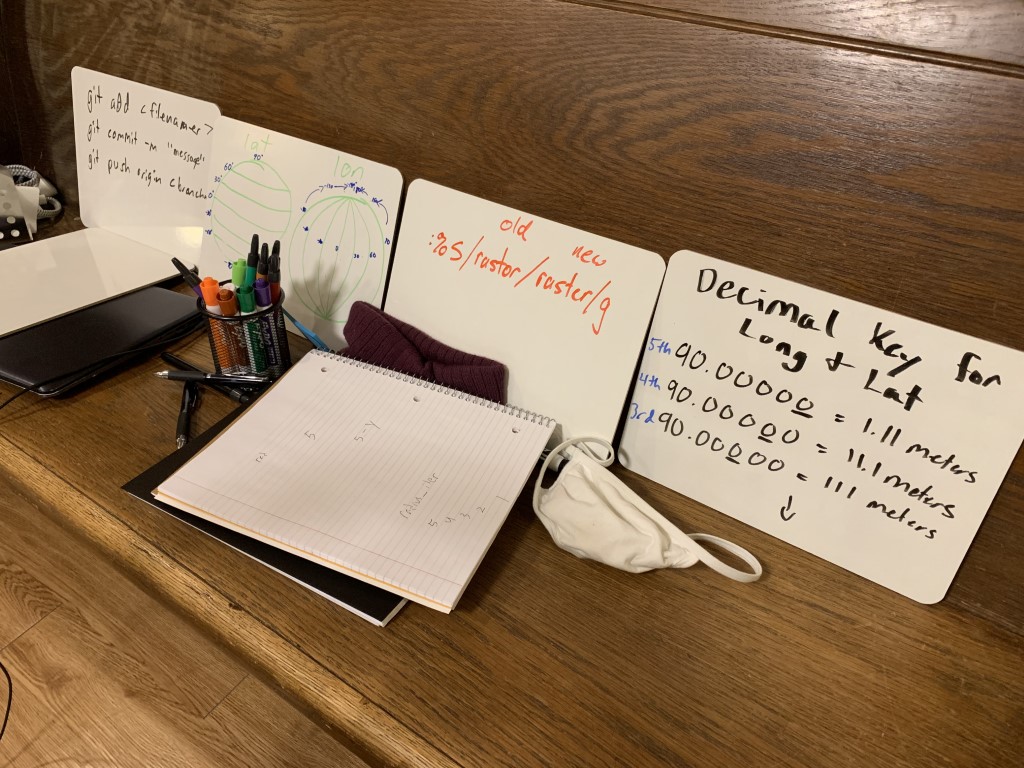 git add <filename>
git commit -m "message"
git push origin <branch
lat
90°
60°
30°
0°
lon
0
30
60
90
old new
:%s/rastor/raster/g
Decimal Key for
Long + Lat
5th 90.00000 = 1.11 meters
4th 90.00000 = 11.1 meters
3rd 90.00000 = 111 meters
↓
5
5-y
return-iter
5
4
3
2
1